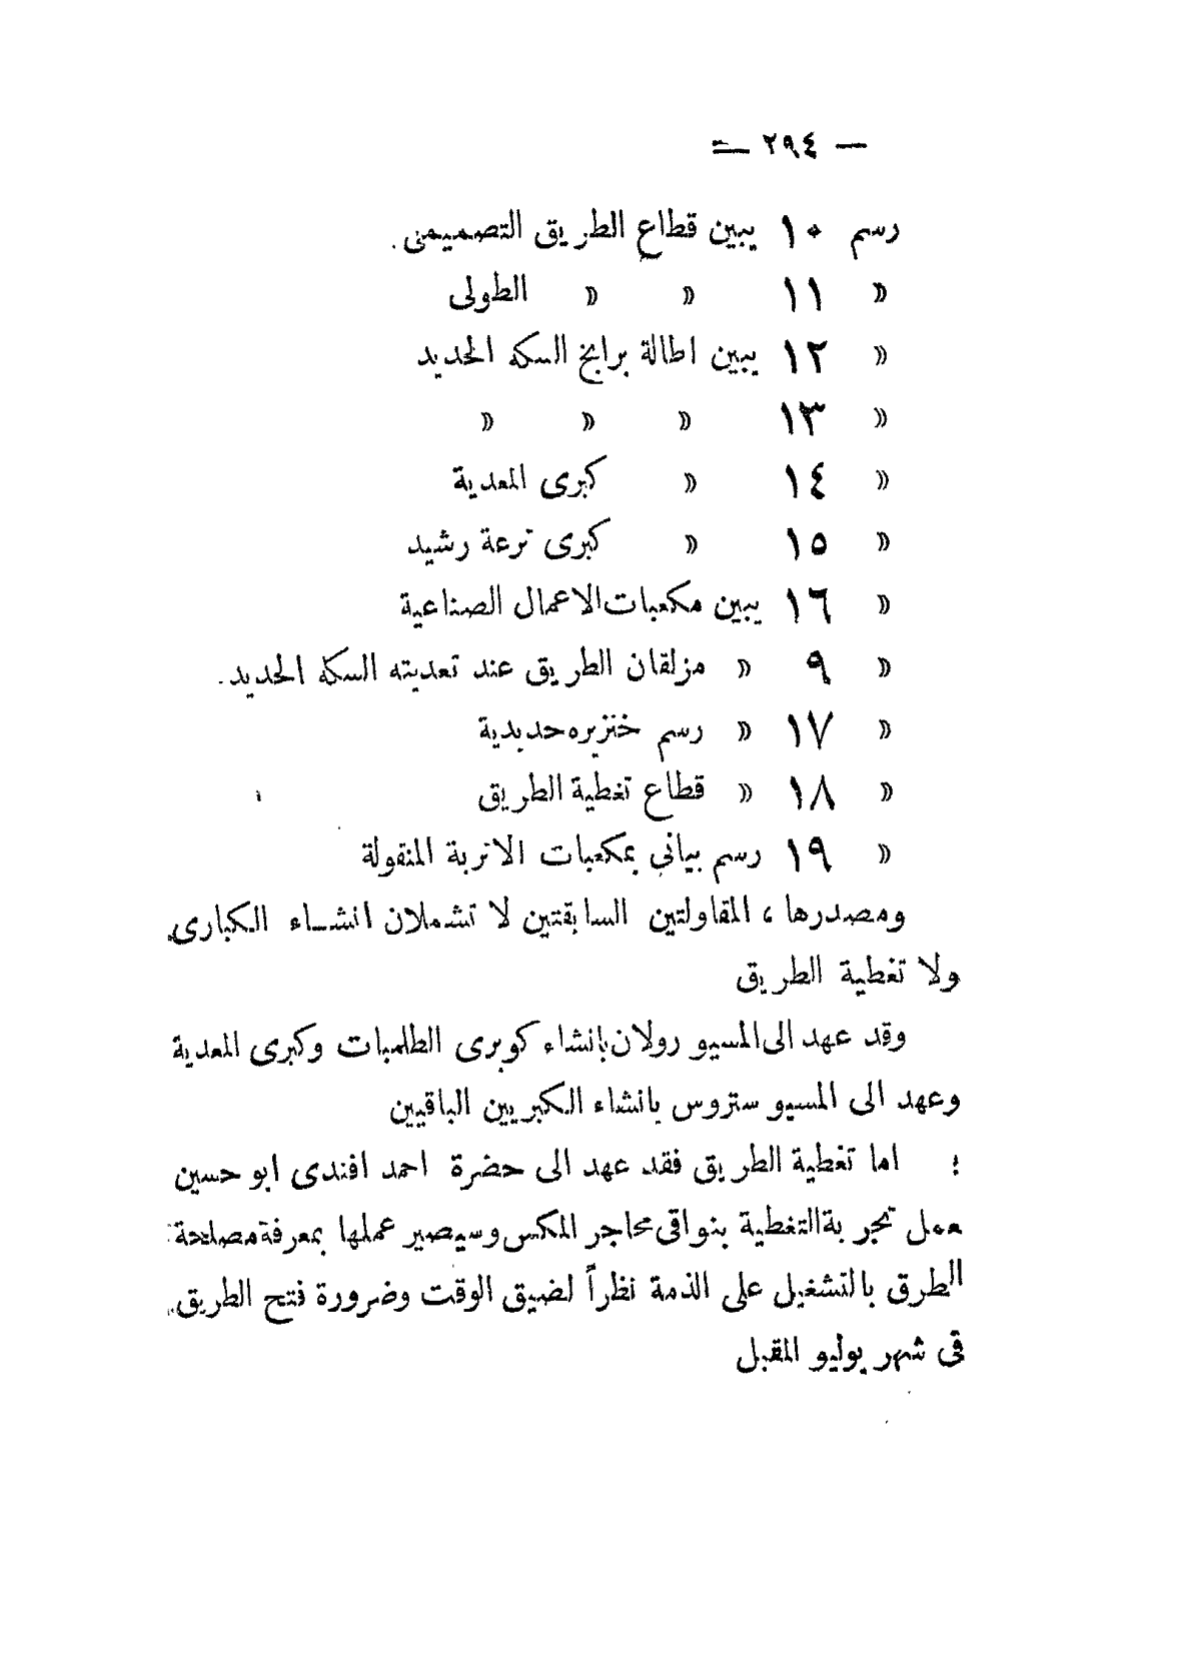 — ٢٩٤ —
رسم ١٠ يبين قطاع الطريق التصميمى.
« ١١ « « الطولى
« ١٢ يبين اطالة برابخ السكه الحديد
« ١٣ « « «
« ١٤ « كبرى المعدية
« ١٥ « كبرى ترعة رشيد
« ١٦ يبين مكعبات الاعمال الصناعية
« ٩ « مزلقان الطريق عند تعديته السكه الحديد.
« ١٧ « رسم خنزيره حديدية
« ١٨ « قطاع تغطية الطريق
« ١٩ رسم بيانى بمكعبات الاتربة المنقولة
ومصدرها ، المقاولتين السابقتين لا تشملان انشاء الكبارى
ولا تغطية الطريق
وقد عهد الى المسيو رولان بانشاء كوبرى الطلمبات وكبرى المعدية
وعهد الى المسيو ستروس بانشاء الكبريين الباقيين
اما تغطية الطريق فقد عهد الى حضرة احمد افندى ابو حسين
عمل تجربة التغطية بنواقى محاجر المكس وسيصير عملها بمعرفة مصلحة
الطرق بالتشغيل على الذمة نظراً لضيق الوقت وضرورة فتح الطريق
فى شهر يوليو المقبل